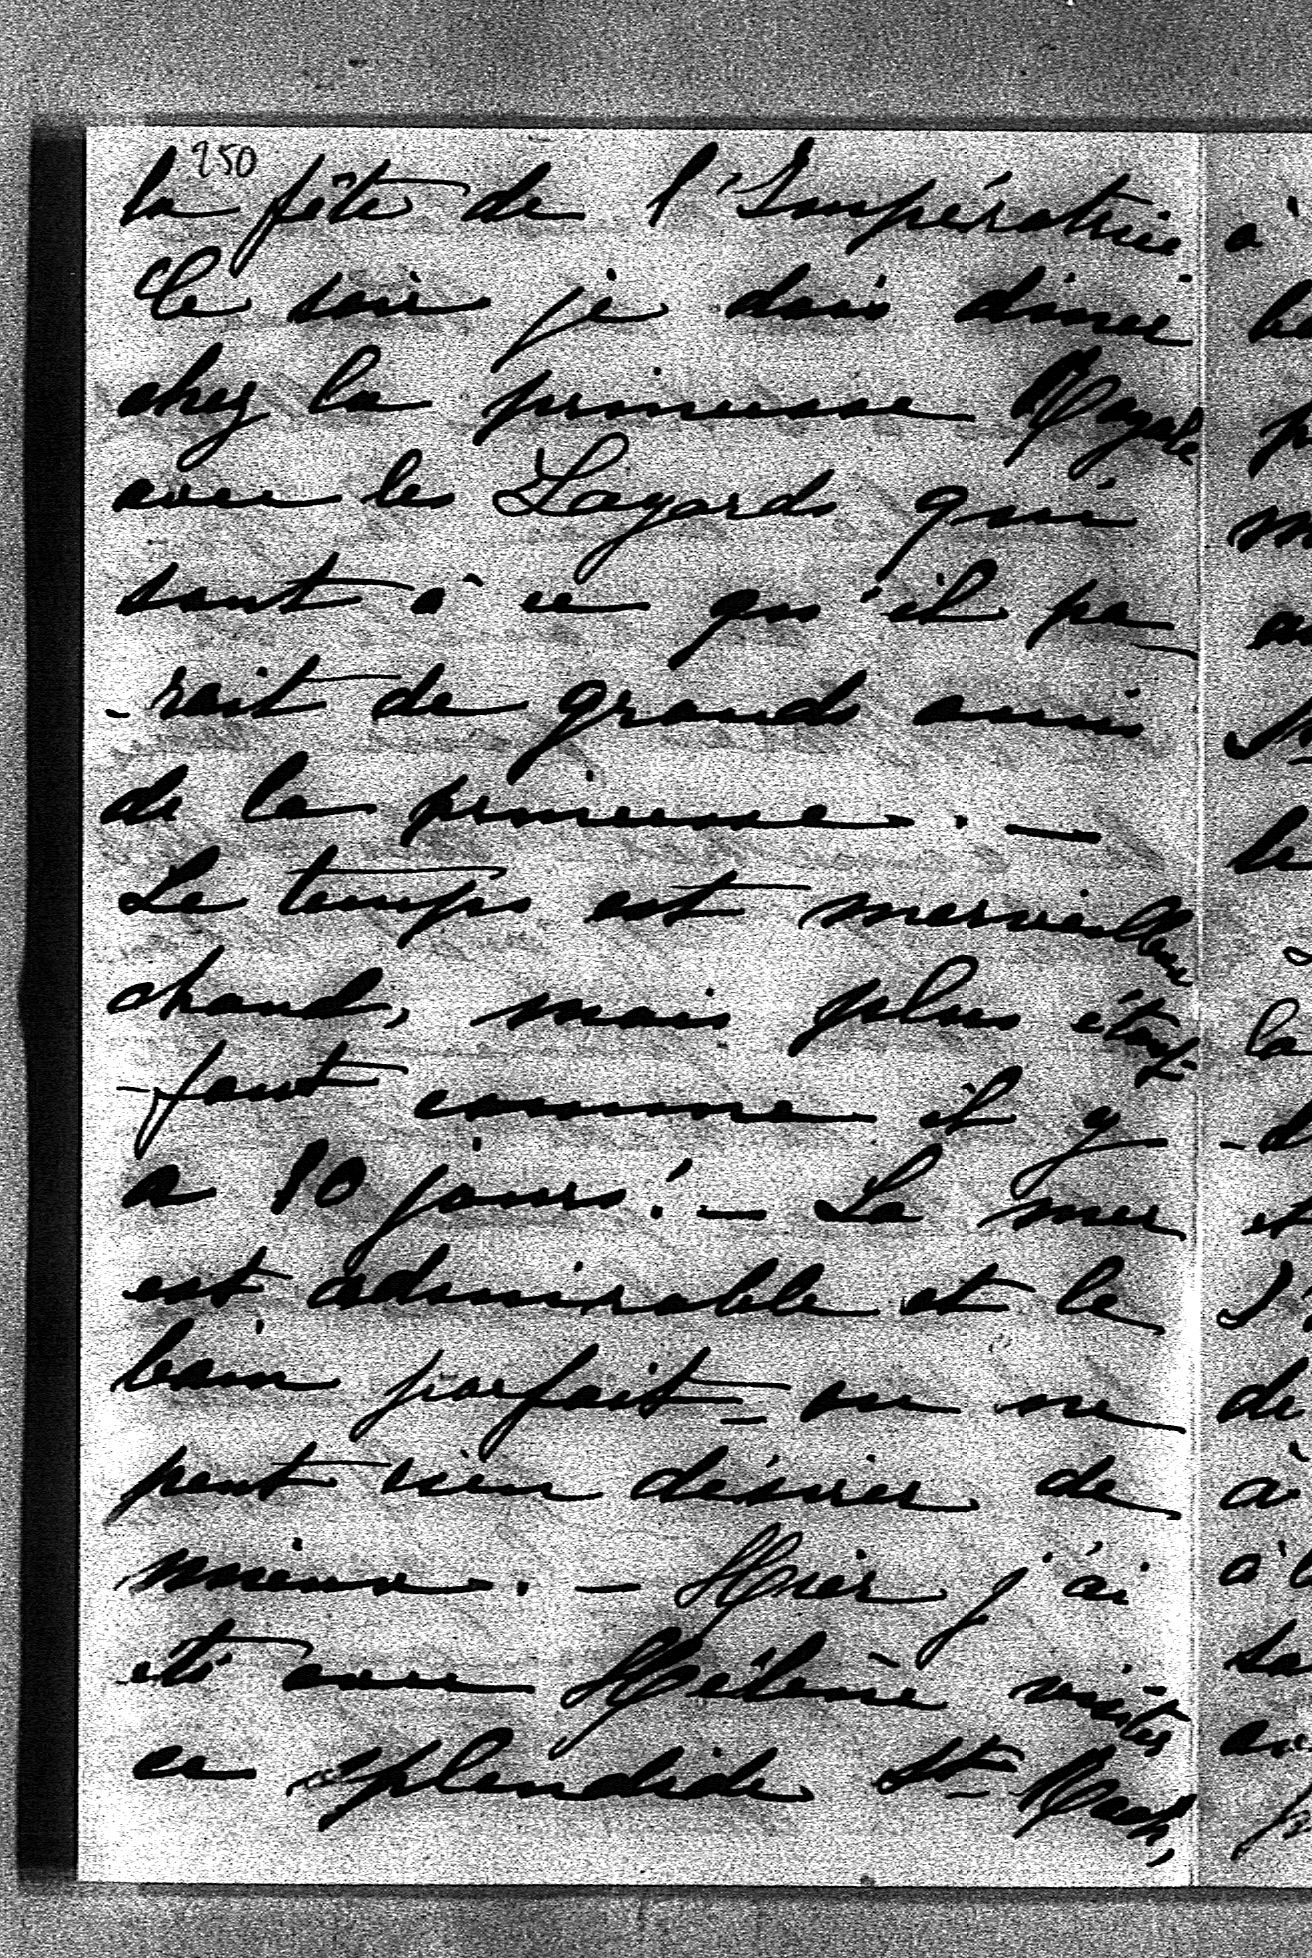 250
la fête de l'Impératrice
Ce soir je dois diner
chez la princesse
avec les Layards qui
sont à ce qu'il pa
-rait de grands amis
de la princesse. —
Le temps est merveilleux
chaud, mais plus étouf-
-fant comme il y
a 10 jours! — La mer
est admirable et le
bain parfait — on ne
peut rien désirer de
mieux. — Hier j'ai
été avec Hélène visiter
ce splendide St Roch,